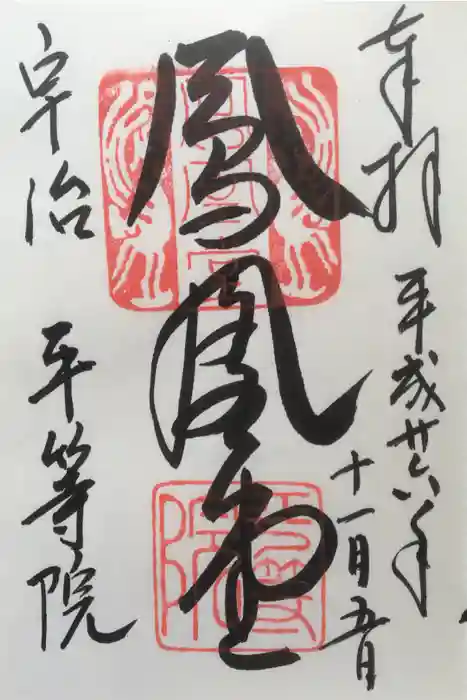 奉拝
平成廿六年
十一月五日
鳳凰堂
宇治
平等院